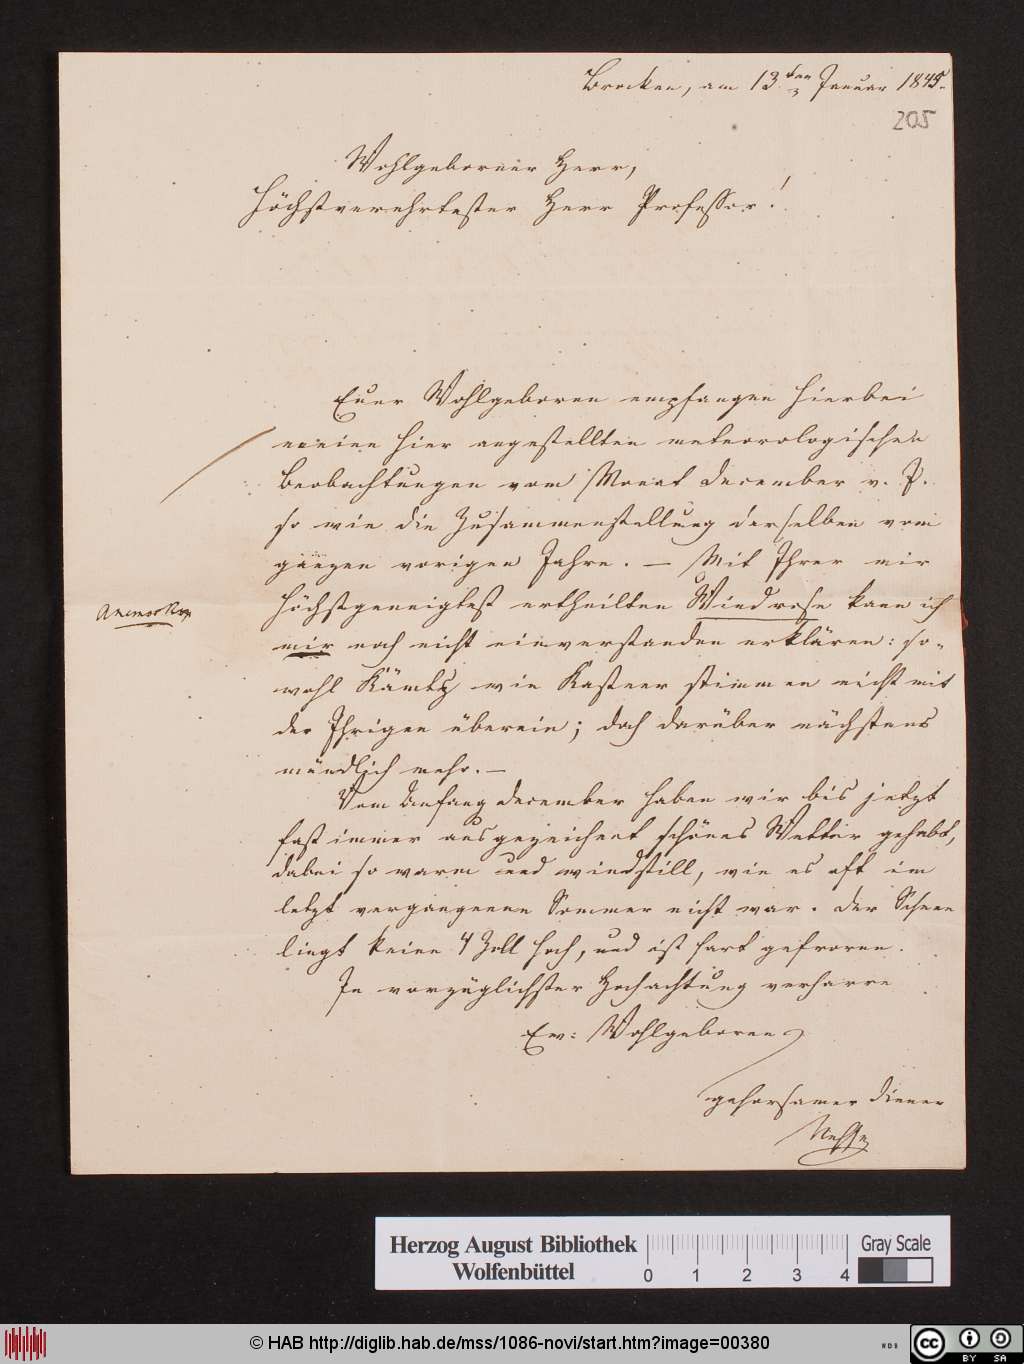 Brocken, am 13ten Januar 1845.
205
Wohlgeborner Herr,
Höchstverehrtester Herr Professor!
Euer Wohlgeboren empfangen hierbei
meine hier angestellten meteorologischen
Beobachtungen vom Monat December v. J.
so wie die Zusammenstellung derselben vom
ganzen vorigen Jahre. — Mit Ihrer mir
höchstgeneigtest ertheilten Windrose kann ich
mir noch nicht einverstanden erklären: so-
wohl Kämtz wie Kastner stimmen nicht mit
der Ihrigen überein; doch darüber nächstens
mündlich mehr. —
Vom Anfang December haben wir bis jetzt
fast immer ausgezeichnet schönes Wetter gehabt,
dabei so warm und windstill, wie es oft im
letzt vergangenen Sommer nicht war. Der Schnee
liegt keine 4 Zoll hoch, und ist hart gefroren.
In vorzüglichster Hochachtung verharre
Ew: Wohlgeboren
gehorsamer Diener
Nehse
Herzog August Bibliothek
Wolfenbüttel
0 1 2 3 4
Gray Scale
© HAB http://diglib.hab.de/mss/1086-novi/start.htm?image=00380
cc BY SA